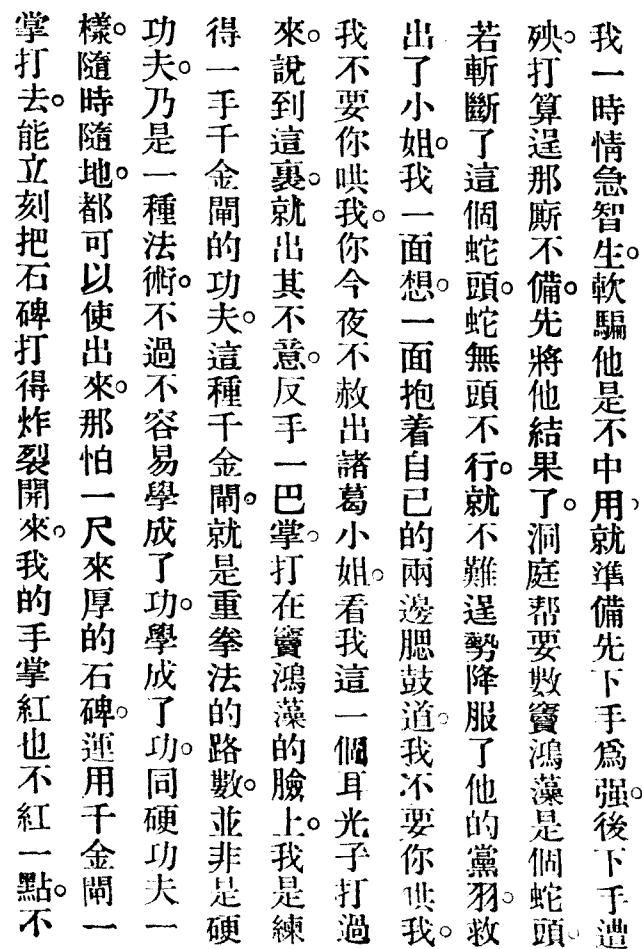 我一時情急智生。軟騙他是不中用、就準備先下手爲强。後下手遭
殃。打算逞那廝不備。先將他結果了。洞庭帮要數竇鴻藻是個蛇頭。
若斬斷了這個蛇頭。蛇無頭不行。就不難逞勢降服了他的黨羽。救
出了小姐。我一面想。一面抱着自己的兩邊腮鼓道。我不要你哄我。
我不要你哄我。你今夜不赦出諸葛小姐。看我這一個耳光子打過
來。說到這裏。就出其不意。反手一巴掌。打在竇鴻藻的臉上。我是練
得一手千金閘的功夫。這種千金閘。就是重拳法的路數。並非是硬
功夫。乃是一種法術。不過不容易學成了功。學成了功。同硬功夫一
樣。隨時隨地。都可以使出來。那怕一尺來厚的石碑。運用千金閘一
掌打去。能立刻把石碑打得炸裂開來。我的手掌紅也不紅一點。不